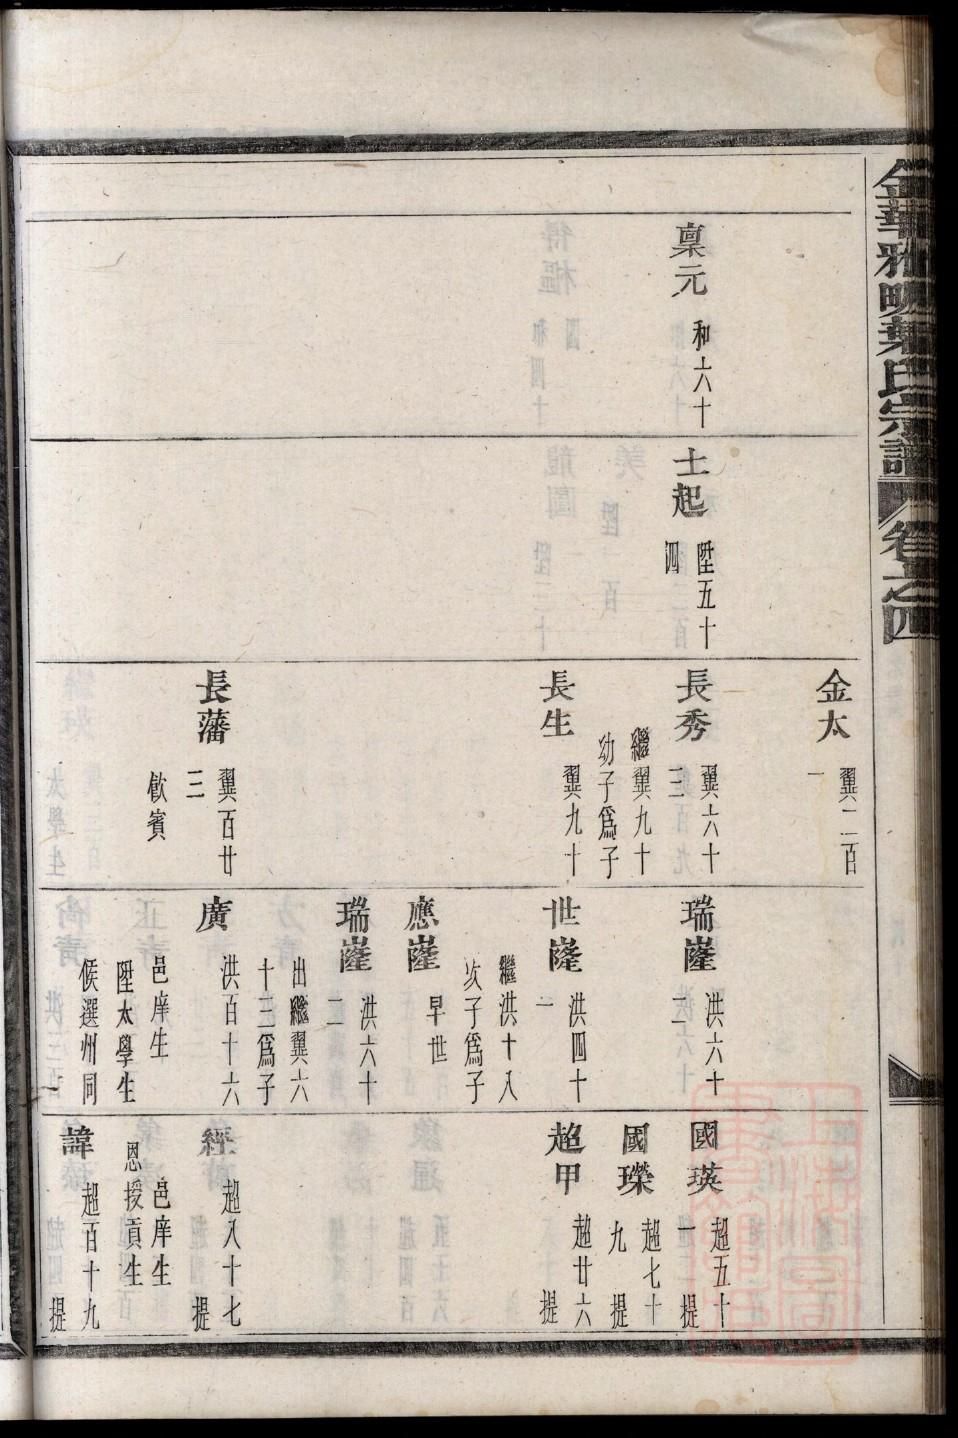 金華雅畈葉氏宗譜 卷之四
稟元 和六十
士起 陞五十
四
金太 翼二百
一
長秀 翼六十
三
繼翼九十
幼子爲子
長生 翼九十
長藩 翼百廿
三
飲賓
瑞嶐 洪六十
二
世嶐 洪四十
一
繼洪十八
次子爲子
應嶐 早世
瑞嶐 洪六十
二
出繼翼六
十三爲子
廣 洪百十六
邑庠生
陞太學生
候選州同
國瑛 超五十
一 提
國瓅 超七十
九 提
超甲 超廿六
提
經 超八十七
提
邑庠生
恩授貢生
諱 超百十九
提